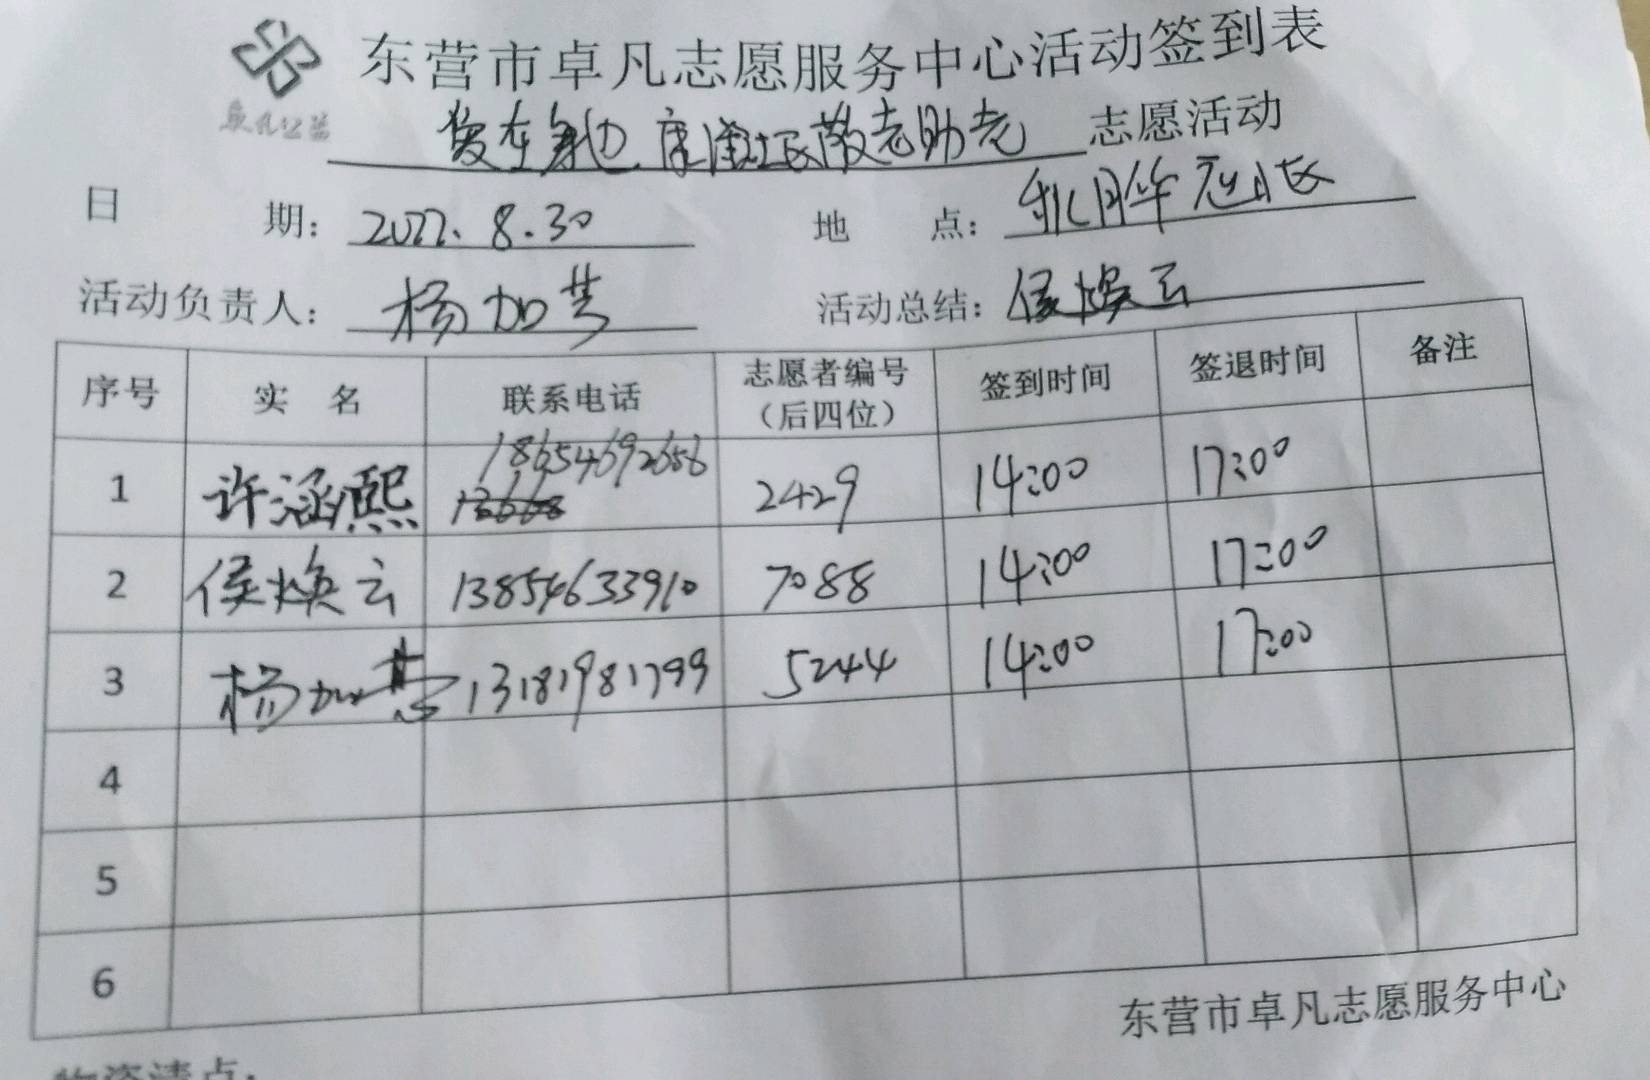 东营市卓凡志愿服务中心活动签到表
卓凡公益
爱在身边 康洁社区敬老助老 志愿活动
日 期: 2022.8.30 地 点:
活动负责人: 杨加芸 活动总结: 侯焕云
序号 实 名 联系电话 志愿者编号(后四位) 签到时间 签退时间 备注
1 许涵熙 18654692656 2429 14:00 17:00
2 侯焕云 13854633910 7088 14:00 17:00
3 杨加芸 13181981799 5244 14:00 17:00
4
5
6
东营市卓凡志愿服务中心
物资清点: